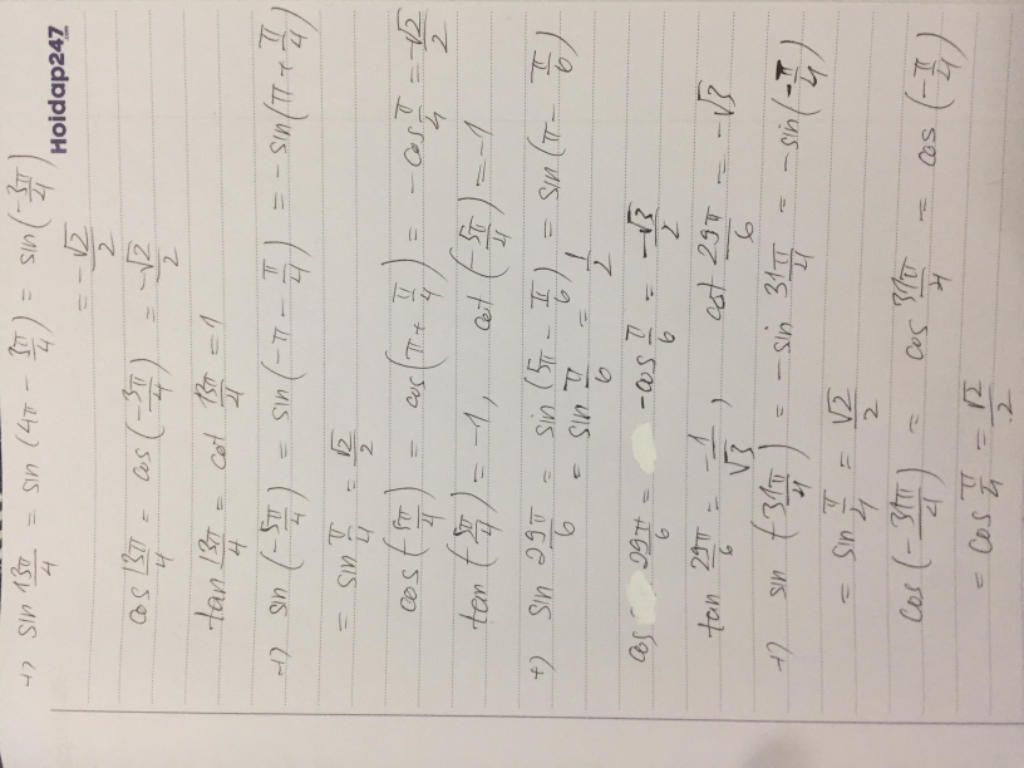 Hoidap247
+) sin 13π/4 = sin (4π - 3π/4) = sin (-3π/4)
= -√2/2
cos 13π/4 = cos (-3π/4) = -√2/2
tan 13π/4 = cot 13π/4 = 1
+) sin (-5π/4) = sin (-π - π/4) = - sin (π + π/4)
= sin π/4 = √2/2
cos (-5π/4) = cos (π + π/4) = - cos π/4 = -√2/2
tan (-5π/4) = -1, cot (-5π/4) = -1
+) sin 29π/6 = sin (5π - π/6) = sin (π - π/6)
= sin π/6 = 1/2
cos 29π/6 = -cos π/6 = -√3/2
tan 29π/6 = -1/√3, cot 29π/6 = -√3
+) sin (-31π/4) = - sin 31π/4 = - sin (-π/4)
= sin π/4 = √2/2
cos (-31π/4) = cos 31π/4 = cos (-π/4)
= cos π/4 = √2/2